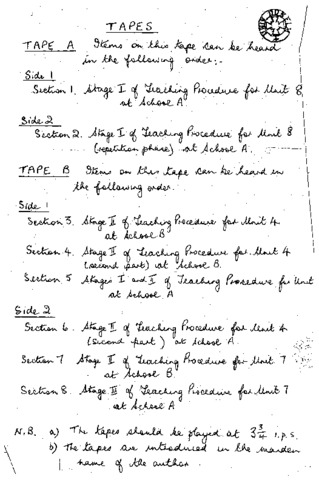 TAPES
TAPE A Items on this tape can be heard
in the following order:-
Side 1
Section 1. Stage I of Teaching Procedure for Unit 8,
at School A.
Side 2
Section 2. Stage I of Teaching Procedure for Unit 8
(repetition phase) at School A.
TAPE B Items on this tape can be heard in
the following order.
Side 1
Section 3. Stage II of Teaching Procedure for Unit 4
at School B
Section 4. Stage II of Teaching Procedure for Unit 4
(second part) at School B.
Section 5 Stages I and II of Teaching Procedure for Unit
at School A
Side 2
Section 6. Stage II of Teaching Procedure for Unit 4
(second part) at School A.
Section 7 Stage II of Teaching Procedure for Unit 7
at School B
Section 8. Stage III of Teaching Procedure for Unit 7
at School A
N.B. a) The tapes should be played at 3 3/4 i.p.s.
b) The tapes are introduced in the maiden
name of the author.